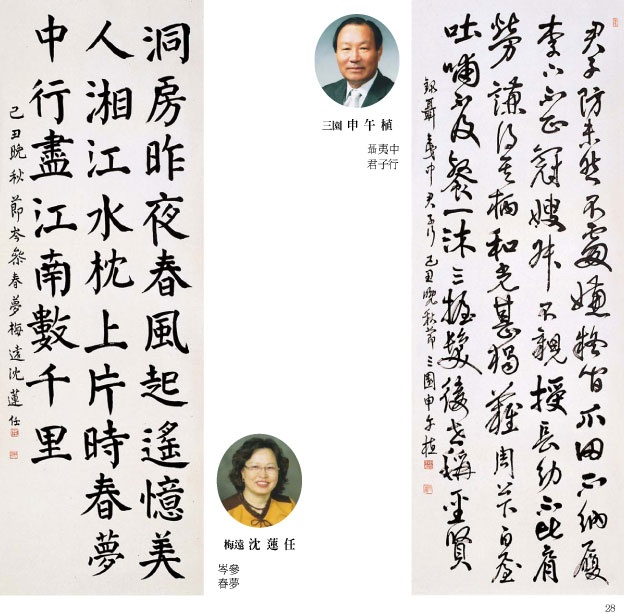 君子防未然不處嫌疑間瓜田不納履
李下不正冠嫂叔不親授長幼不比肩
勞謙得其柄和光甚獨難周公下白屋
吐哺不及餐一沐三握髮後世稱聖賢
錄聶夷中君子行 己丑晚秋節 三園申午植
三園 申午植
聶夷中
君子行
洞房昨夜春風起遙憶美
人湘江水枕上片時春夢
中行盡江南數千里
己丑晚秋節岑參春夢梅遠沈蓮任
梅遠 沈蓮任
岑參
春夢
28